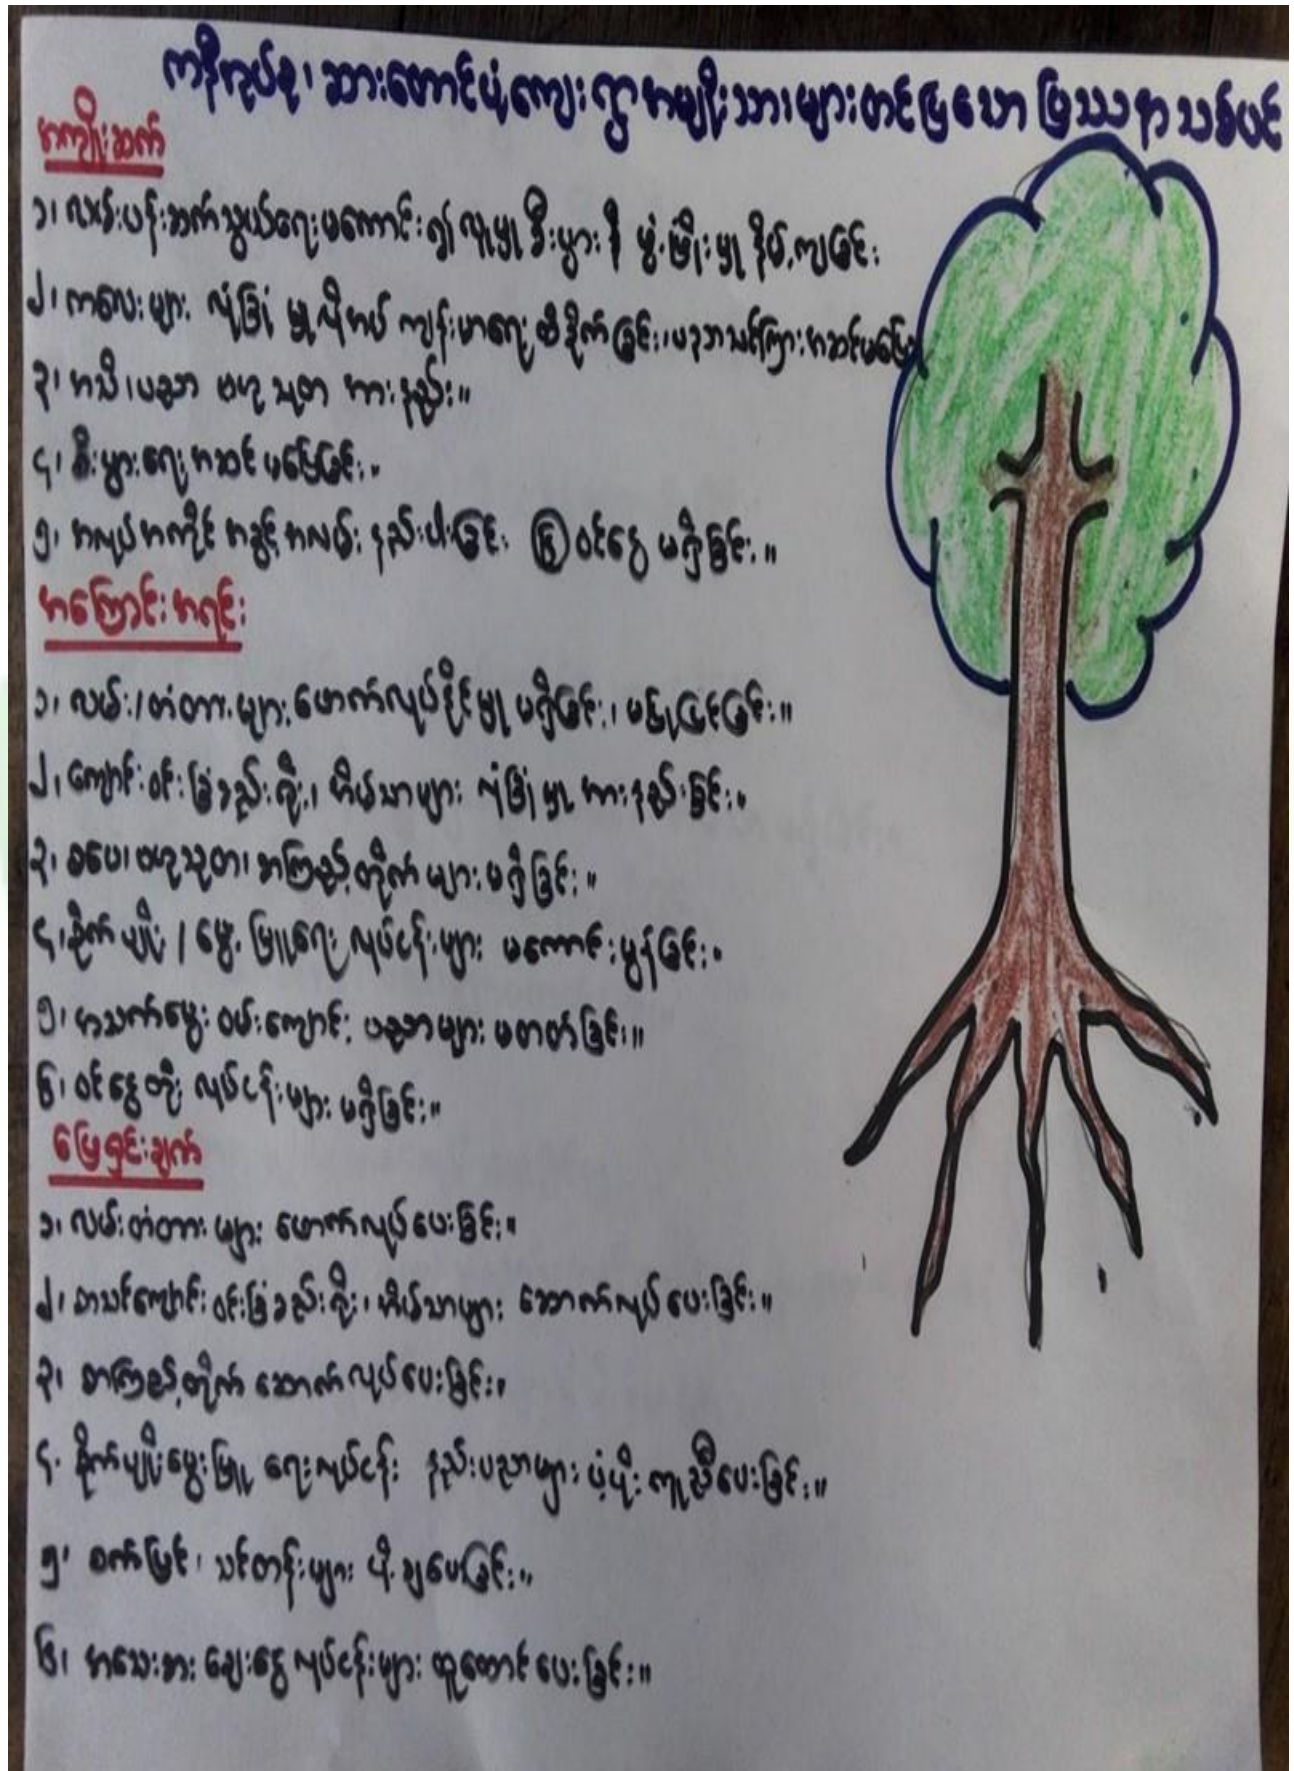 ကနီကုပ်စု၊ ဆားတောင်ပို့ကျေးရွာ အမျိုးသားများတင်ပြသော ပြဿနာသစ်ပင်
အကျိုးဆက်
၁၊ လမ်းပန်းဆက်သွယ်ရေးမကောင်း၍ လူမှု စီးပွား နှိ ဖွံ့ဖြိုးမှု နိမ့်ကျခြင်း
၂၊ ကလေးများ လုံခြုံ မှု လိုအပ် ကျန်းမာရေး ထိခိုက်ခြင်း၊ ပညာသင်ကြားအဆင်မပြေ
၃၊ အသိ ၊ ပညာ ဗဟုသုတ အားနည်း။
၄၊ စီးပွားရေး အဆင်မပြေခြင်း။
၅၊ အလုပ်အကိုင် အခွင့်အလမ်း နည်းပါးခြင်း ⑥ ဝင်ငွေ မရှိခြင်း။
အကြောင်းအရင်း
၁၊ လမ်း/တံတားများ ဖောက်လုပ်နိုင်မှု မရှိခြင်း၊ မပြုပြင်ခြင်း။
၂၊ ကျောင်းဝင်းခြံစည်းရိုး၊ အိမ်သာများ လုံခြုံမှု အားနည်းခြင်း။
၃၊ စာပေ၊ ဗဟုသုတ၊ စာကြည့်တိုက်များ မရှိခြင်း။
၄၊ စိုက်ပျိုး / မွေးမြူရေး လုပ်ငန်းများ မကောင်းမွန်ခြင်း။
၅၊ အသက်မွေး ဝမ်းကျောင်း ပညာများ မတတ်ခြင်း။
၆၊ ဝင်ငွေတိုး လုပ်ငန်းများ မရှိခြင်း။
ဖြေရှင်းချက်
၁၊ လမ်းတံတားများ ဖောက်လုပ်ပေးခြင်း။
၂၊ စာသင်ကျောင်း ဝင်းခြံစည်းရိုး၊ အိမ်သာများ ဆောက်လုပ်ပေးခြင်း။
၃၊ စာကြည့်တိုက် ဆောက်လုပ်ပေးခြင်း။
၄. စိုက်ပျိုးမွေးမြူရေးလုပ်ငန်း နည်းပညာများ ပံ့ပိုးကူညီပေးခြင်း။
၅၊ စက်မြင်၊ သင်တန်းများ ပို့ချပေးခြင်း။
၆၊ အသေးစား ချေးငွေလုပ်ငန်းများ ထူထောင်ပေးခြင်း။